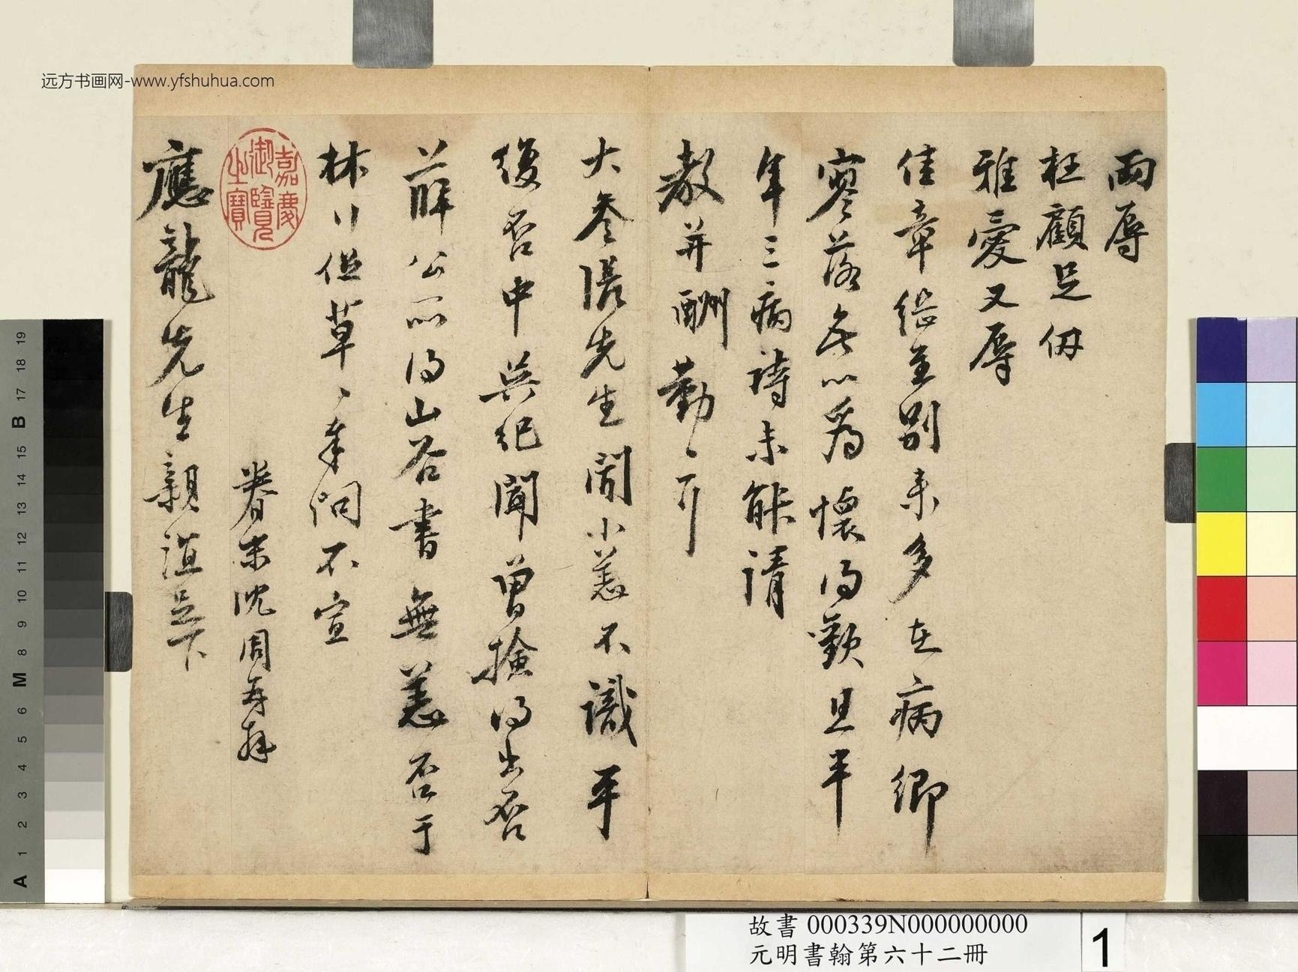 远方书画网-www.yfshuhua.com
兩辱
枉顧足仞
雅愛又辱
佳章繼至別來多在病鄉
寥落無以為懷得歎且半
年三病詩未能請
教并酬勤〻耳
大参張先生聞小恙不識平
復否中吳紀聞曾撿得出否
薛公所得山谷書無恙否于
林 但草〻奉問不宣
眷末沈周再拜
應龍先生親誼足下
嘉慶御覽之寶
故書 000339N000000000
元明書翰第六十二冊
1
A 1 2 3 4 5 6 M 8 9 10 11 12 13 14 15 B 17 18 19